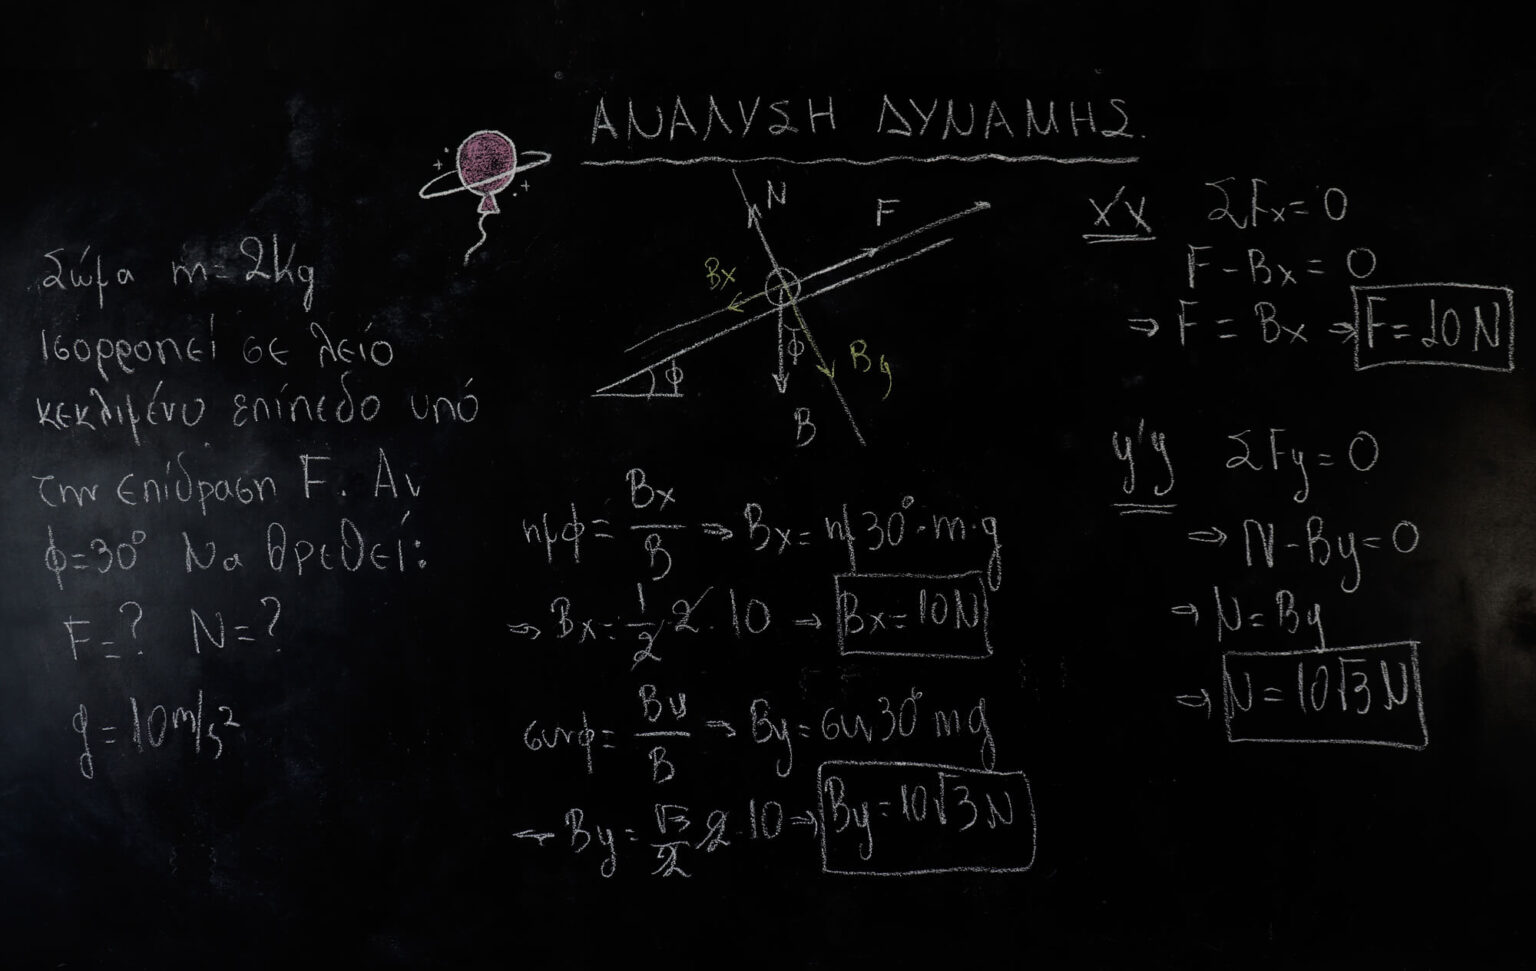 ΑΝΑΛΥΣΗ ΔΥΝΑΜΗΣ.
Σώμα m=2Kg
Ισορροπεί σε λείο
κεκλιμένο επίπεδο υπό
την επίδραση F. Αν
φ=30° Να βρεθεί:
F=? N=?
g=10m/s²
N
F
Bx
φ
φ
By
B
ημφ=Bx/B ⇒ Bx=ημ30°·m·g
⇒ Bx=1/2 2·10 ⇒ Bx=10N
συνφ=By/B ⇒ By=συν30°mg
⇒ By=√3/2 2·10 ⇒ By=10√3N
x'x ΣFx=0
F-Bx=0
⇒ F=Bx ⇒ F=10N
y'y ΣFy=0
⇒ N-By=0
⇒ N=By
⇒ N=10√3N